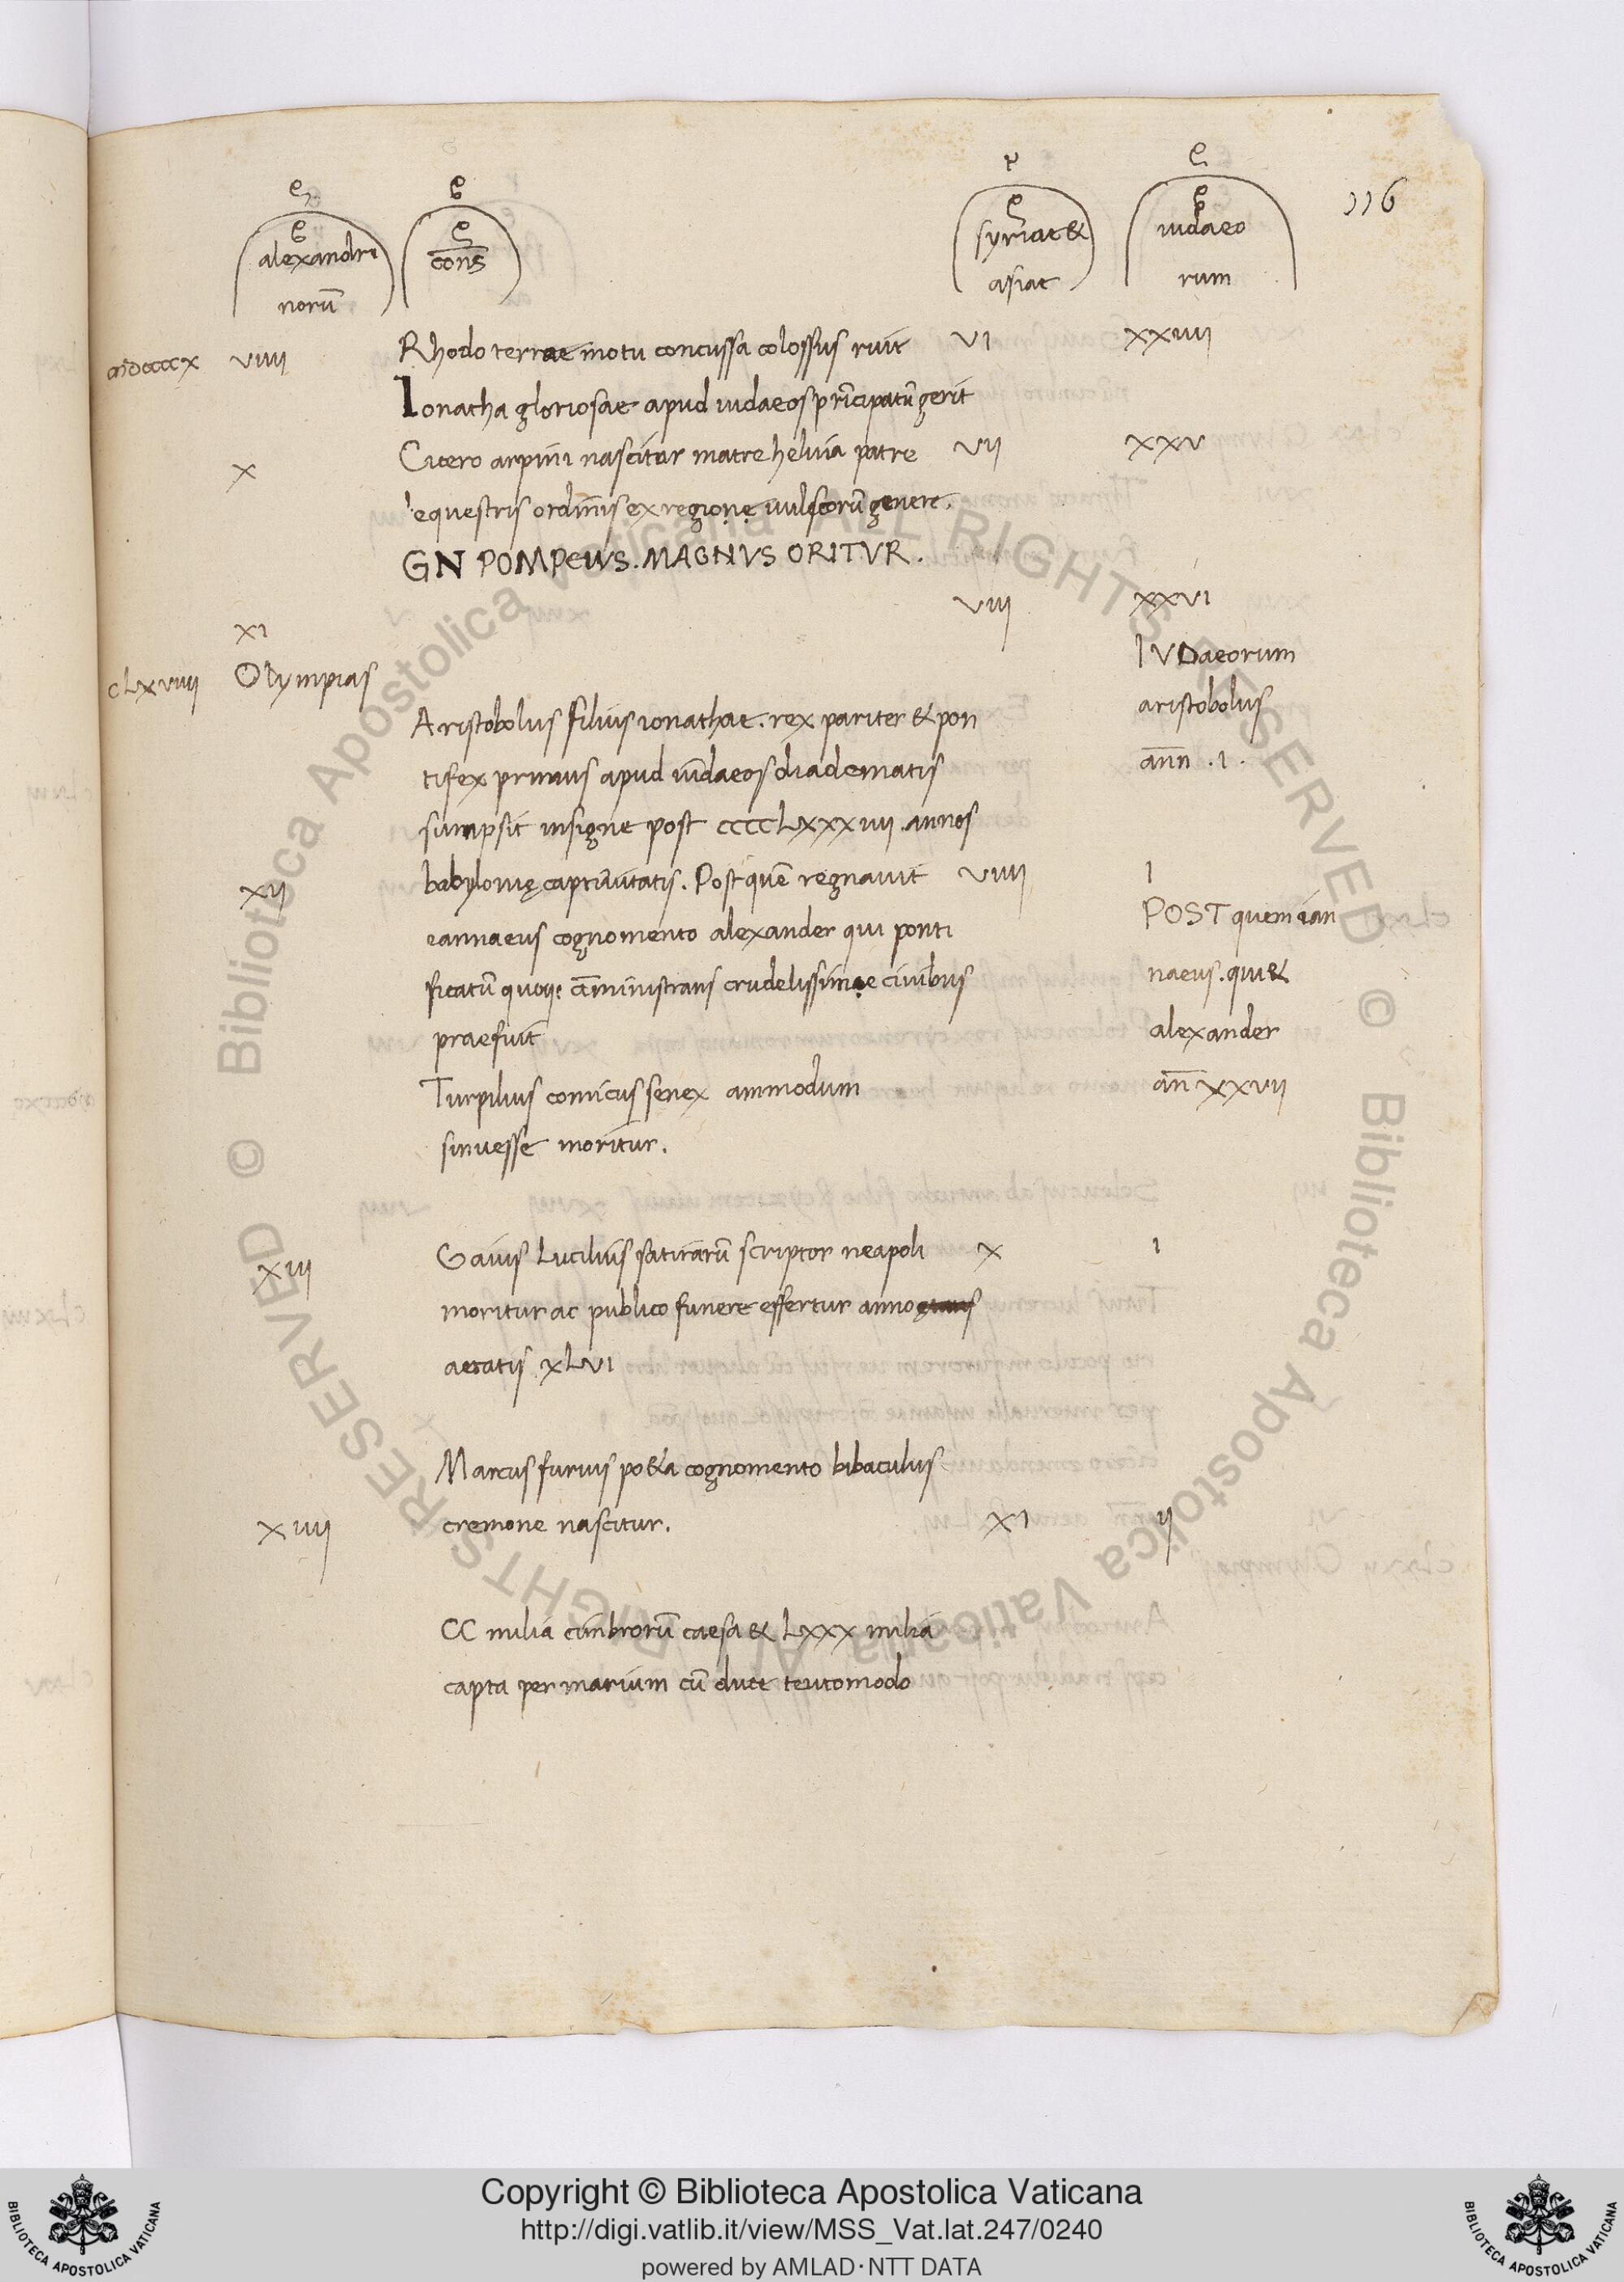 116
alexandri
norū
cons
syriae &
asiae
iudaeo
rum
VIIII
Rhodo terrae motu concussa colossus ruit
VI
XXIIII
Ionatha gloriosae apud iudaeos prīcipatū gerit
X
Cicero arpini nascitur matre heluia patre
VII
XXV
equestris ordinis ex regione uulscorū genere.
GN POMPEIUS. MAGNUS ORITUR.
VIII
XXVI
XI
CLXVIIII Olympias
IUDaeorum
aristobolus
ann̄ . I .
Aristobolus filius ionathae. rex pariter & pon
tifex primus apud iudaeos diadematis
sumpsit insigne post CCCCLXXXIIII annos
XII
babylonię captiuitatis. Post quē regnauit
VIIII
I
iannaeus cognomento alexander qui ponti
POST quem ian
ficatū quoq; amministrans crudelissime ciuibus
naeus. qui &
praefuit
alexander
Turpilius comicus senex ammodum
an̄ XXVII
sinuesse moritur.
XIII
Gaius Lucilius satirarū scriptor neapoli
X
I
moritur ac publico funere effertur anno
aetatis XLVI
Marcus furius po&a cognomento bibaculus
XIIII
cremone nascitur.
XI
II
CC milia cimbrorū caesa & LXXX milia
capta per marium cū duce teutomodo
Copyright © Biblioteca Apostolica Vaticana
http://digi.vatlib.it/view/MSS_Vat.lat.247/0240
powered by AMLAD·NTT DATA
BIBLIOTECA APOSTOLICA VATICANA
BIBLIOTECA APOSTOLICA VATICANA
© Biblioteca Apostolica Vaticana ALL RIGHTS RESERVED © Biblioteca Apostolica Vaticana ALL RIGHTS RESERVED